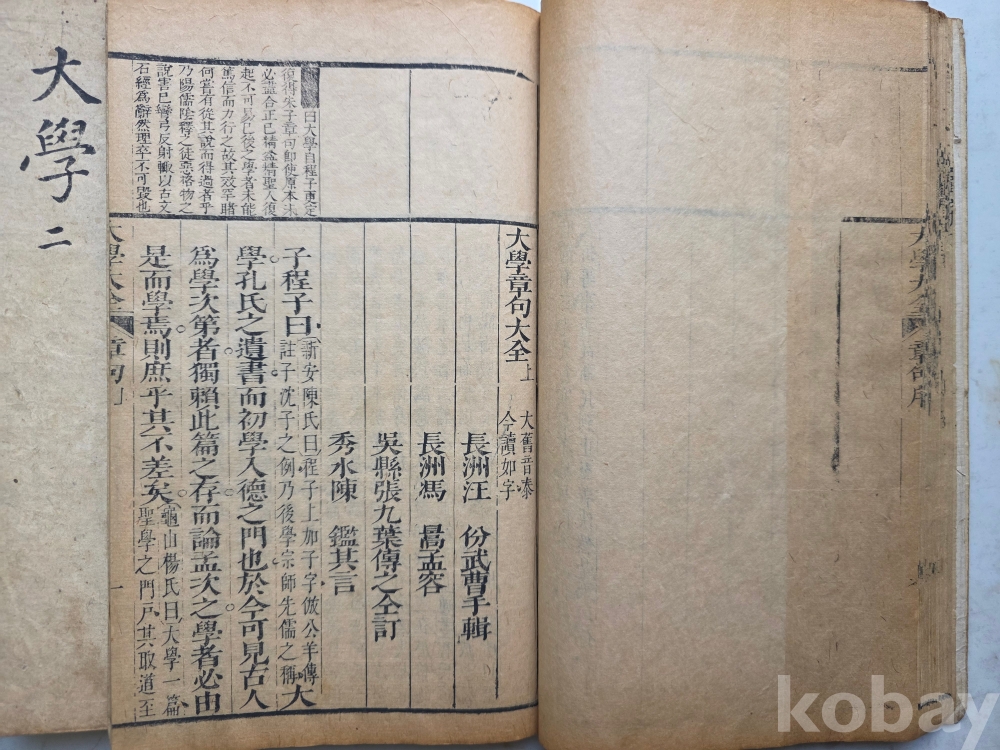 大學 二
曰大學自程子更定
復得朱子章句即使原本未
必盡合正已精益精聖人復
起不可易已後之學者未能
篤信而力行之故其效罕睹
何嘗有從其說而得過者乎
乃陽儒陰釋之徒惡格物之
說害已彎弓反射輒以古文
石經為辭然理卒不可毀也
大學章句大全上
大舊音泰
今讀如字
長洲汪 份武曹手輯
長洲馮 暠孟容
吳縣張九葉傳之仝訂
秀水陳 鑑其言
子程子曰
新安陳氏曰程子上加子字倣公羊傳
註子沈子之例乃後學宗師先儒之稱
大
學孔氏之遺書而初學入德之門也於今可見古人
為學次第者獨賴此篇之存而論孟次之學者必由
是而學焉則庶乎其不差矣
龜山楊氏曰大學一篇
聖學之門戶其取道至
大學大全 章句上 一
大學大全 章句序
kobay